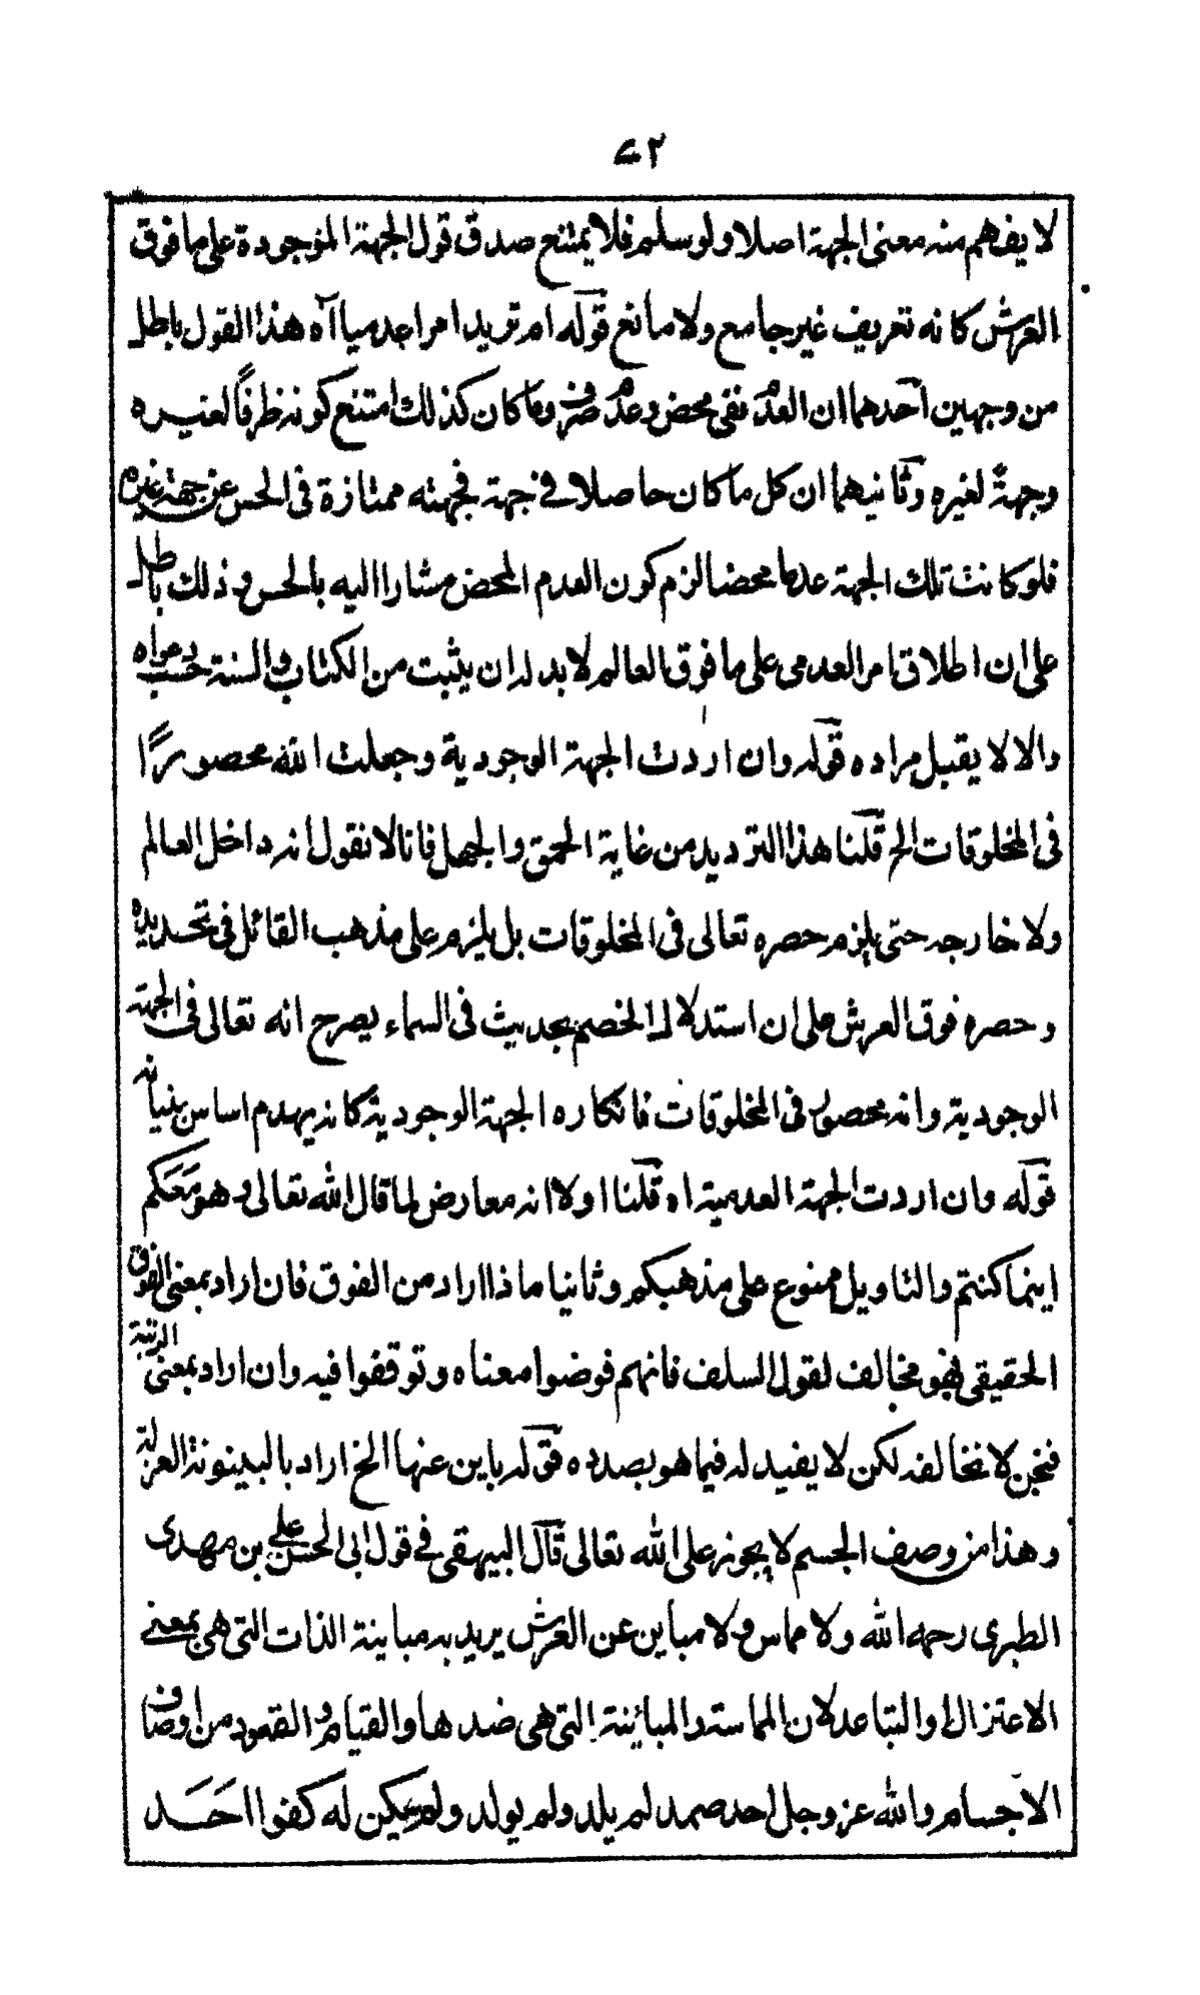 ٤٢
لا يفهم منه معنى الجهة اصلا ولو سلم فلا يمتنع صدق قول الجهة الموجودة على ما فوق
العرش كانه تعريف غير جامع ولا مانع قوله ام تريد امرا عدميا اه هذا القول باطل
من وجهين احدهما ان العدم نفى محض وعدم صرف وما كان كذلك امتنع كونه ظرفًا لغيره
وجهةً لغيره وثانيهما ان كل ما كان حاصلا في جهة فجهته ممتازة فى الحس عن جهة غيره
فلو كانت تلك الجهة عدما محضا لزم كون العدم المحض مشارا اليه بالحس وذلك باطل
على ان اطلاق امر العدمى على ما فوق العالم لا بد له ان يثبت من الكتاب والسنة حسب دعواه
والا لا يقبل مراده قوله وان اردت الجهة الوجودية وجعلت الله محصورًا
فى المخلوقات الخ قلنا هذا الترديد من غاية الحمق والجهل فانا لا نقول انه داخل العالم
ولا خارجه حتى يلزم حصره تعالى فى المخلوقات بل يلزم على مذهب القائل فى تحديده
وحصره فوق العرش على ان استدلال الخصم بحديث فى السماء يصرح انه تعالى فى الجهة
الوجودية وانه محصور فى المخلوقات فانكاره الجهة الوجودية كانه يهدم اساس بنيانه
قوله وان اردت الجهة العدمية اه قلنا اولا انه معارض لما قال الله تعالى وهو مَعَكم
اينما كنتم والتاويل ممنوع على مذهبكم وثانيا ما ذا اراد من الفوق فان اراد بمعنى الفوق
الحقيقى فهو مخالف لقول السلف فانهم فوضوا معناه وتوقفوا فيه وان اراد بمعنى الرتبة
فنحن لا نخالفه لكن لا يفيد له فيما هو بصدده قوله باين عنها الخ اراد بالبينونة العزلة
وهذا من وصف الجسم لا يجوز على الله تعالى قال البيهقى في قول ابى الحسن على بن مهدى
الطبرى رحمه الله ولا مماس ولا مباين عن العرش يريد به مباينة الذات التى هى بمعنے
الاعتزال او التباعد لان المماسة والمبائنة التى هى ضدها والقيام والقعود من اوصاف
الاجسام والله عز وجل احد صمد لم يلد ولم يولد ولم يكن له كفوا احَد